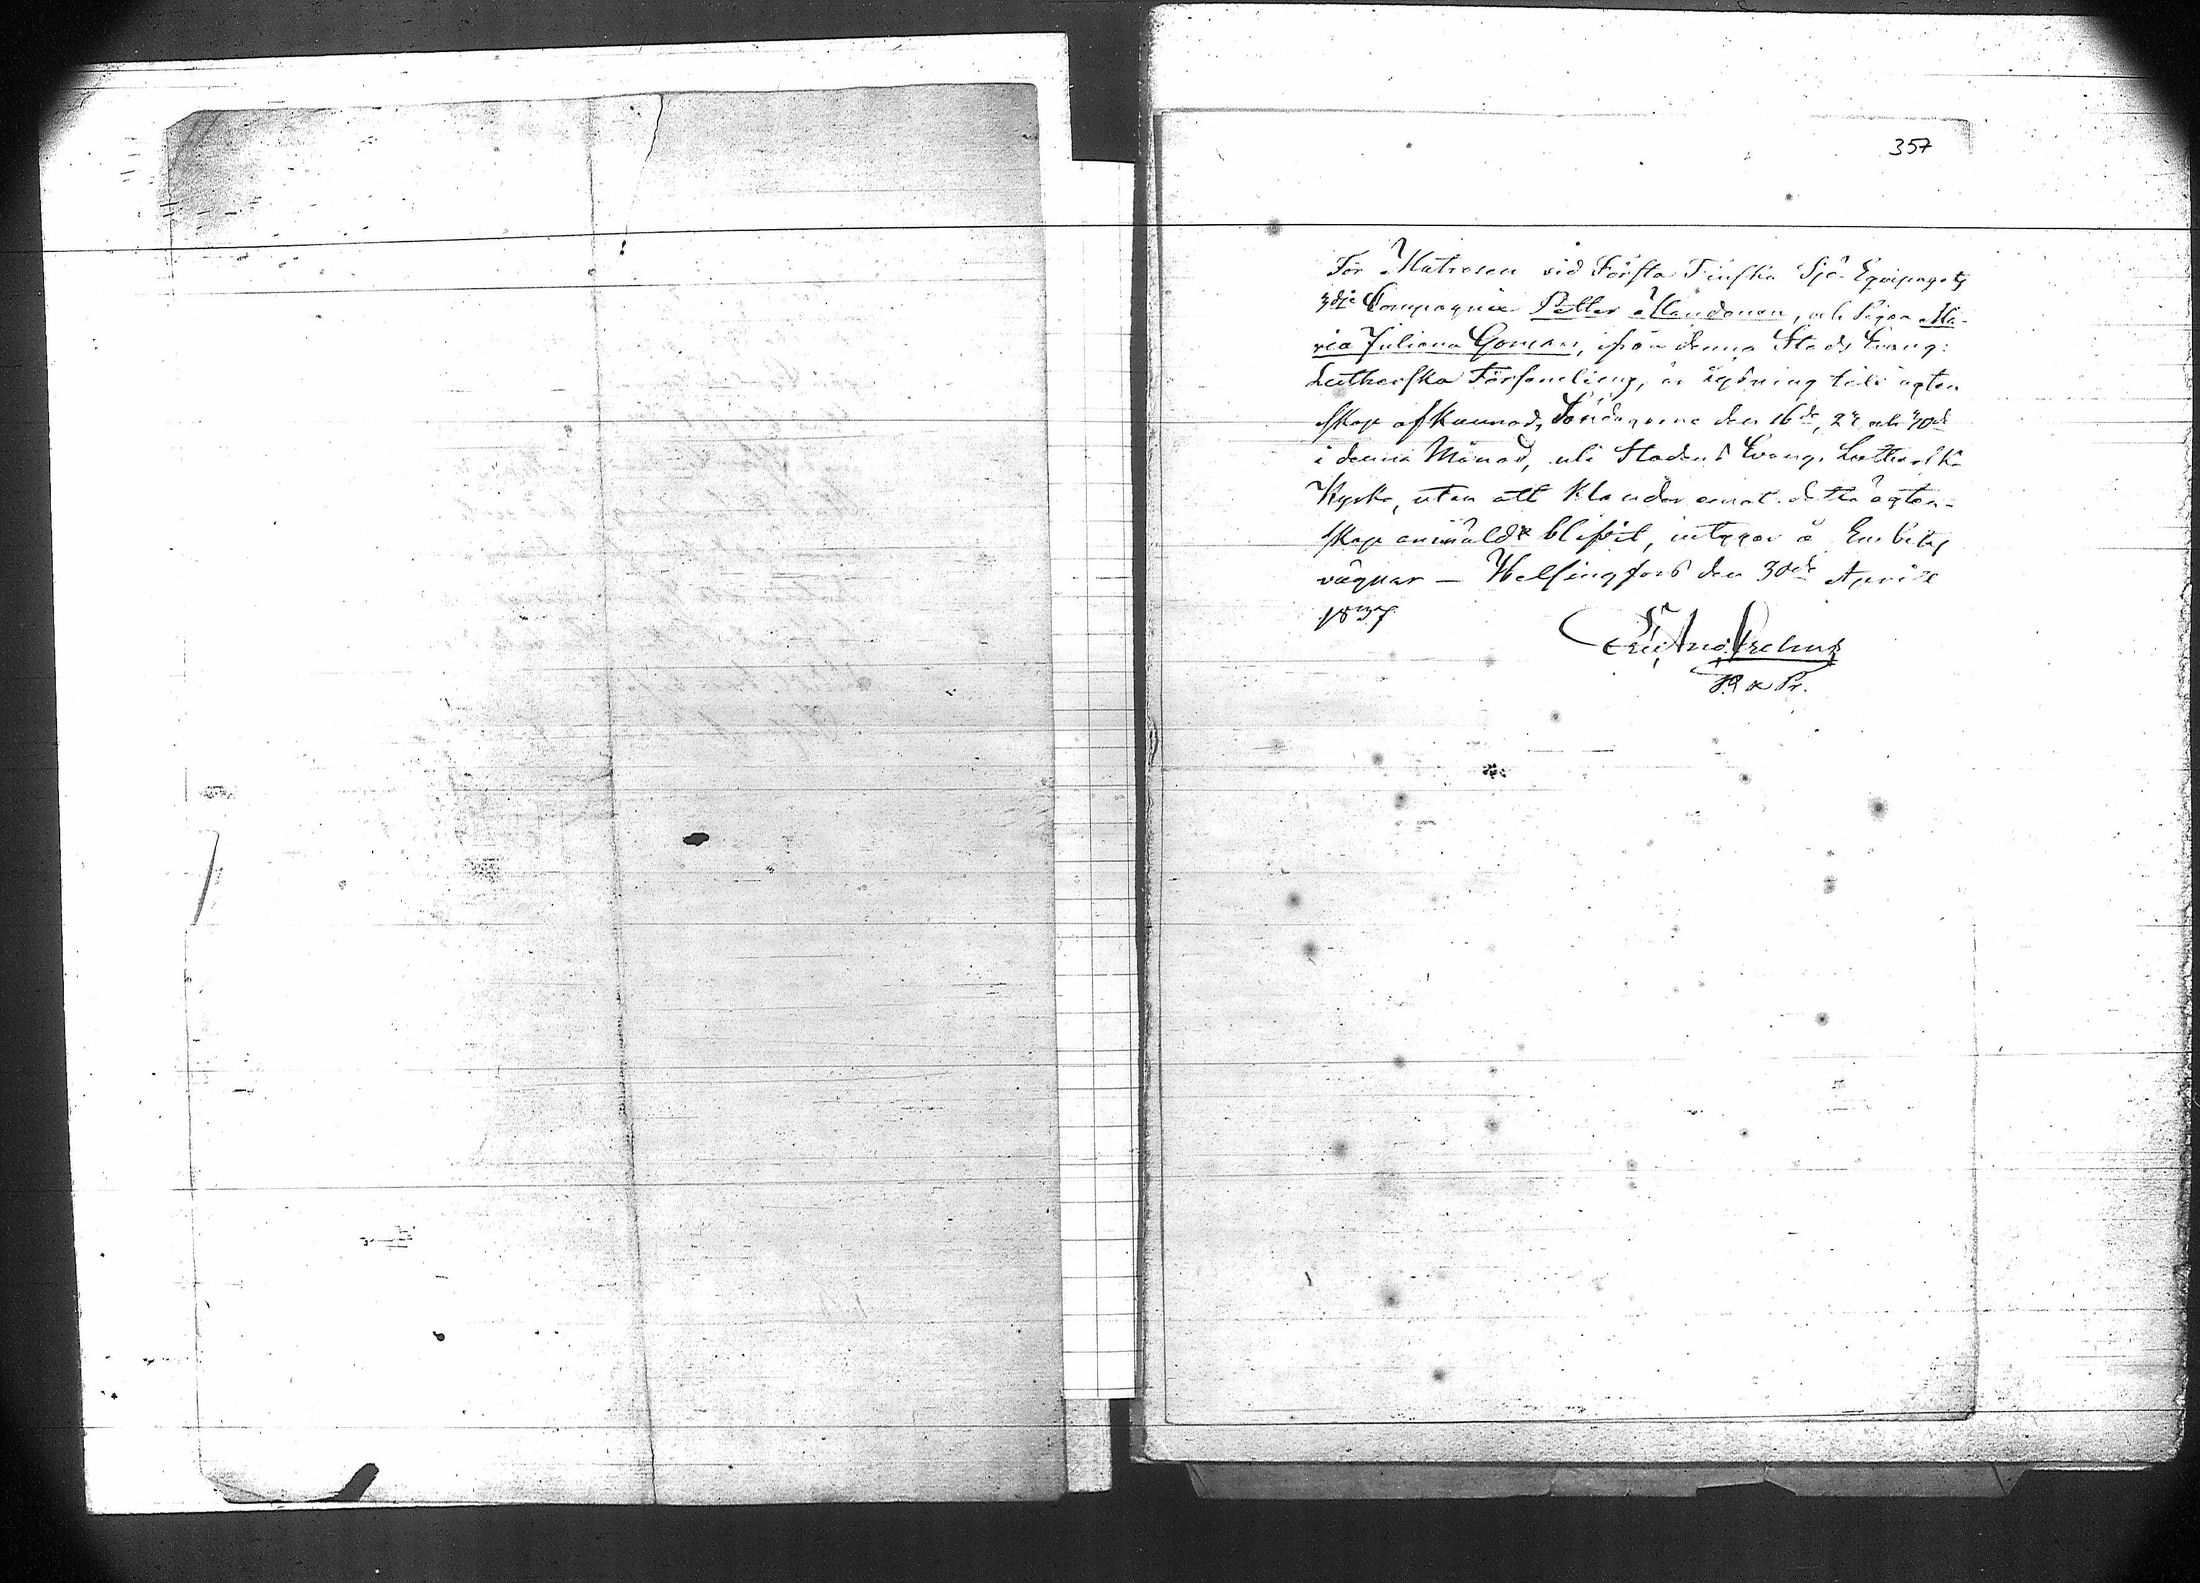 357
För Matrosen vid Första Finska Sjö-Equipagets
3dje Compagnie Petter Mandonen, och Pigan Ma-
ria Juliana Goman, ifrån denna Stads Evang:
Lutherska Församling, är lysning till ägten
skap afkunnad, Söndagarne den 16de, 23 och 30de
i denna Månad, uti Stadens Evang. Lutherska
Kyrka, utan att klander emot detta ägten-
skap anmäldt blifvit, intygar å Embets
vägnar — Helsingfors den 30de April
1837